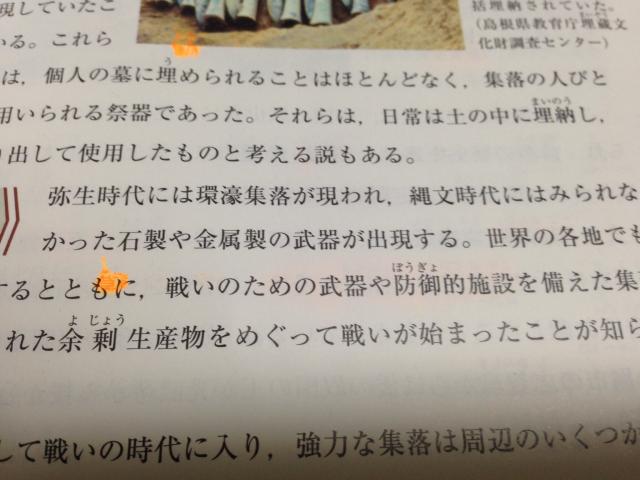 現していたこ
いる。これら
括埋納されていた。
(島根県教育庁埋蔵文
化財調査センター)
は，個人の墓に埋められることはほとんどなく，集落の人びと
う
用いられる祭器であった。それらは，日常は土の中に埋納し，
まいのう
り出して使用したものと考える説もある。
弥生時代には環濠集落が現われ，縄文時代にはみられな
かった石製や金属製の武器が出現する。世界の各地でも
するとともに，戦いのための武器や防御的施設を備えた集
ぼうぎょ
れた余剰生産物をめぐって戦いが始まったことが知ら
よ じょう
して戦いの時代に入り，強力な集落は周辺のいくつか